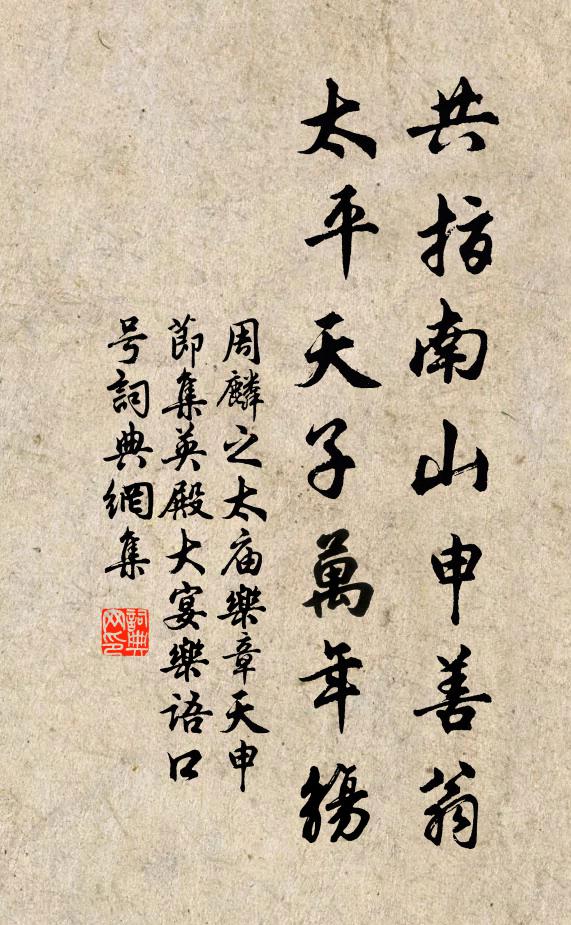 共指南山申善翁
太平天子萬年觴
周麟之太庙樂章天申
節集英殿大宴樂語口
号詞典網集
詞典
网印